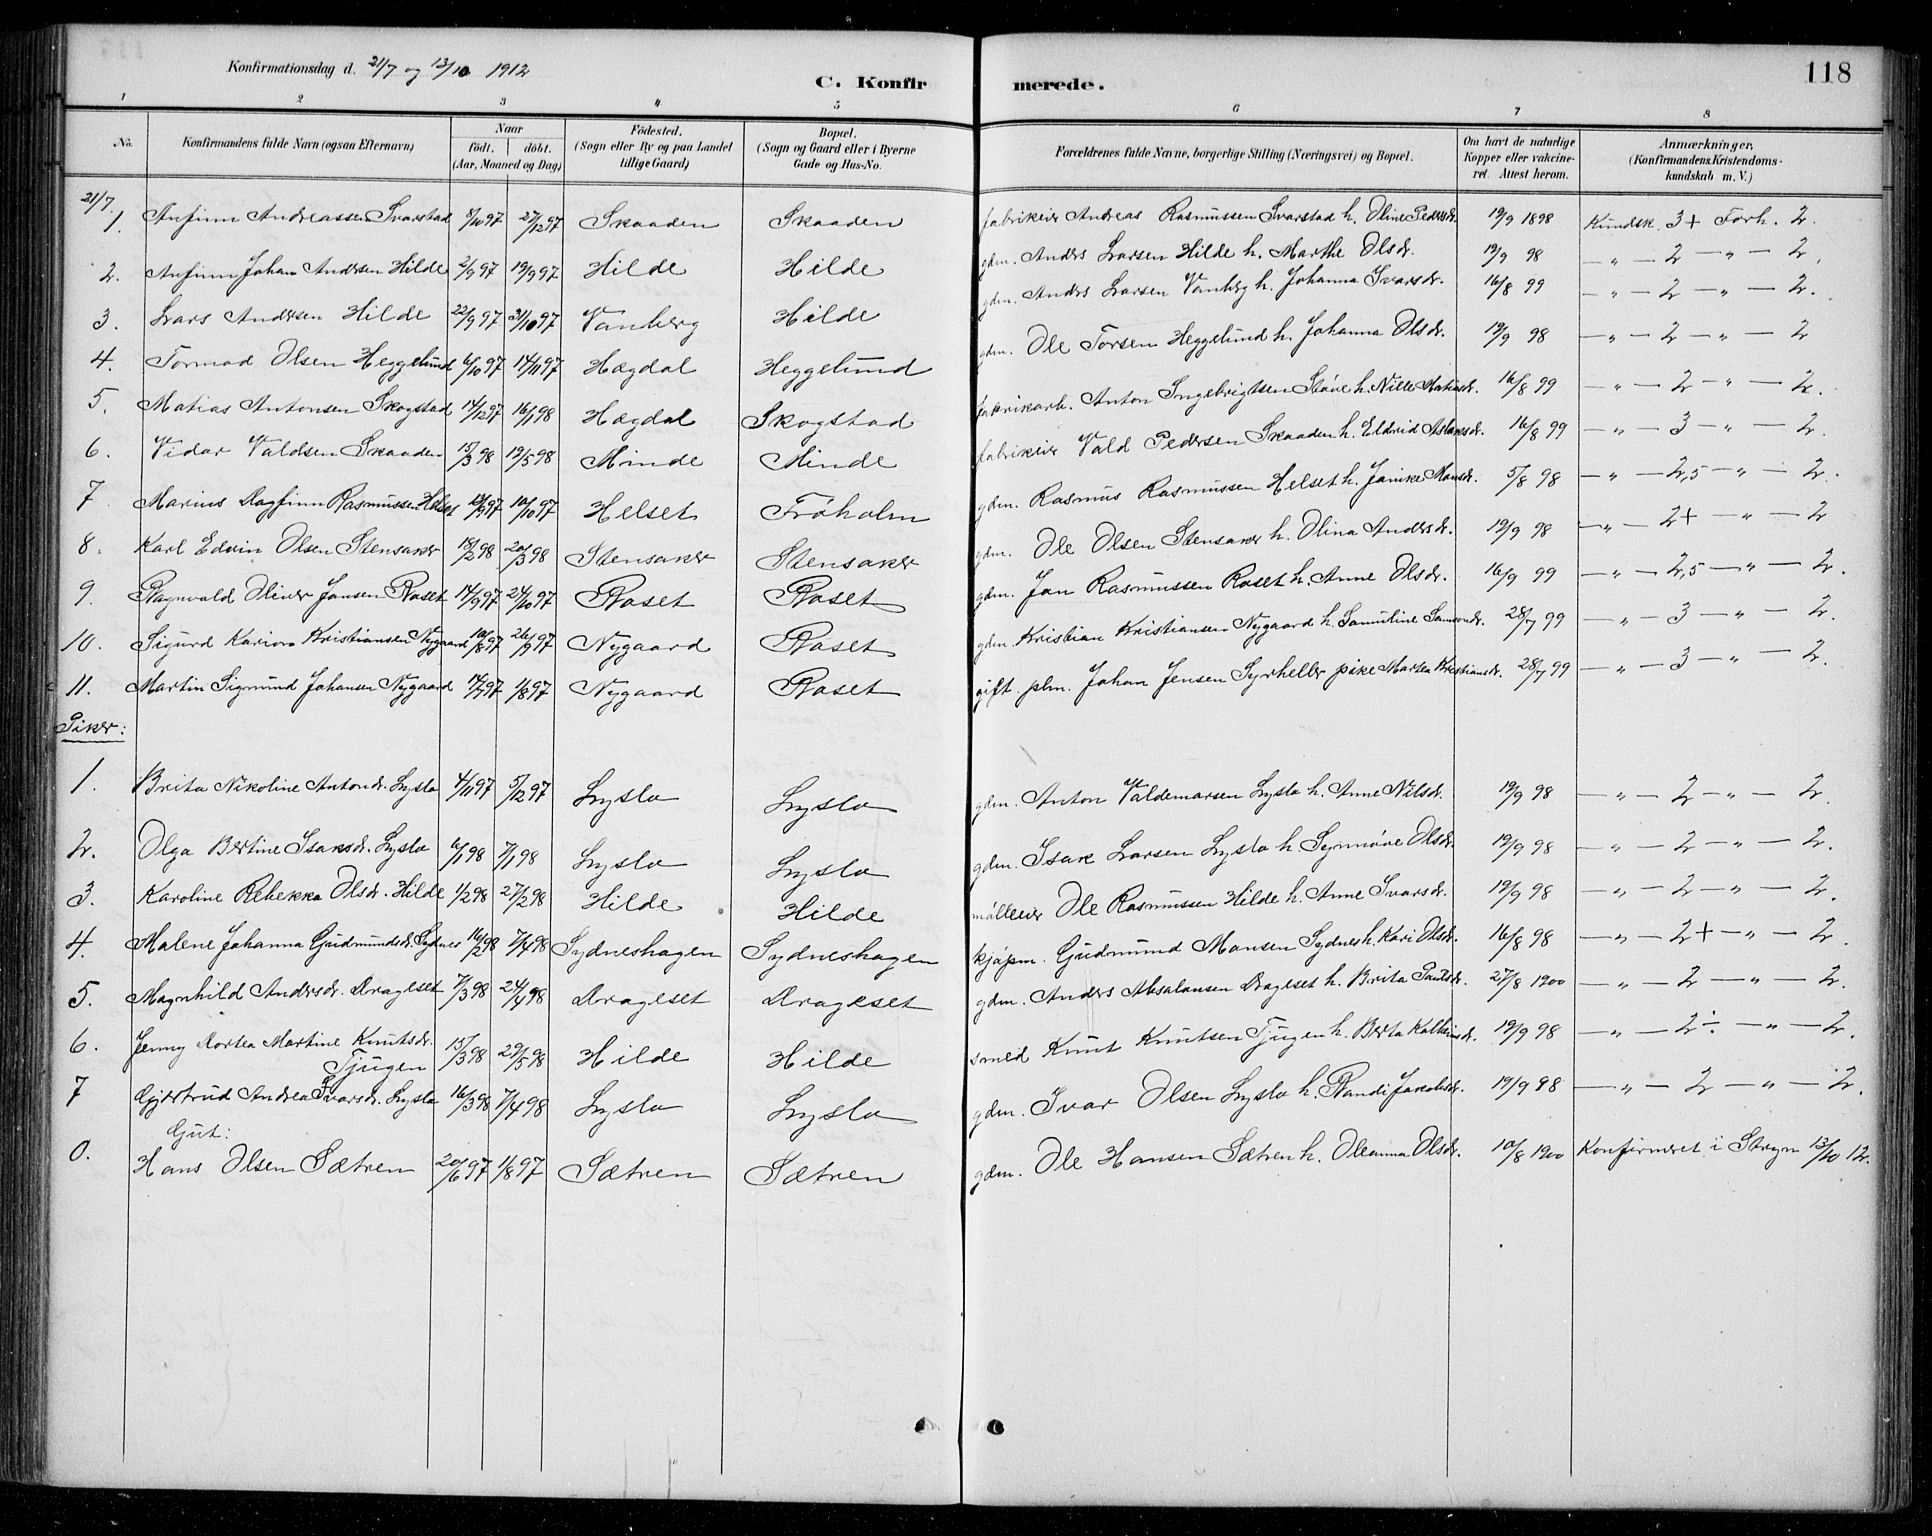 Konfirmationsdag d. 21/7 og 13/10 1912 C. Konfirmerede. 118
1 2 3 4 5 6 7 8
No. Konfirmandens fulde Navn (ogsaa Efternavn) Naar født. døbt. (Aar, Maaned og Dag) Fødested. (Sogn eller By og paa Landet tillige Gaard) Bopæl. (Sogn og Gaard eller i Byerne Gade og Hus-No. Forældrenes fulde Navne, borgerlige Stilling (Næringsvei) og Bopæl. Om havt de naturlige Kopper eller vakcineret. Attest herom. Anmærkninger. (Konfirmandens Kristendomskundskab m. V.)
21/7.
1. Anfinn Andreassen Svarstad 8/10 97 27/12 97 Skaaden Skaaden fabrikeier Andreas Rasmussen Svarstad h. Oline Pedersdr. 19/9 1898 Kundsk. 3+ Forh. 2.
2. Anfinn Johan Andersen Hilde 2/9 97 19/9 97 Hilde Hilde gdm. Anders Larsen Hilde h. Marthe Olsdr. 19/9 98 — „ — 2 — „ — 2.
3. Lars Andersen Hilde 22/9 97 31/10 97 Vanberg Hilde gdm. Anders Larsen Vanberg h. Johanna Ivarsdr. 16/8 99 — „ — 2 — „ — 2.
4. Tormod Olsen Heggelund 6/10 97 14/11 97 Hægdal Heggelund gdm. Ole Torsen Heggelund h. Johanna Olsdr. 19/9 98 — „ — 2 — „ — 2
5. Matias Antonsen Skogstad 14/12 97 16/1 98 Hægdal Skogstad fabrikarb. Anton Ingebrigtsen Støve h. Nille Matiasdr. 16/8 99 — „ — 2 — „ — 2.
6. Vidar Valdsen Skaaden 15/3 98 19/5 98 Minde Minde fabrikeier Vald Pedersen Skaaden h. Eldrid Aslaksdr. 16/8 99 — „ — 3 — „ — 2.
7. Marius Dagfinn Rasmussen Helset 97 10/10 97 Helset Frøholm gdm. Rasmus Rasmussen Helset h. Janike Monsdr. 5/8 98 — „ — 2,5 — „ — 2.
8. Karl Edvin Olsen Stensaker 15/2 98 20/3 98 Stensaker Stensaker gdm. Ole Olsen Stensaker h. Olina Andersdr. 19/9 98 — „ — 2+ — „ — 2
9. Ragnvald Oliver Jonsen Roset 14/9 97 24/10 97 Roset Roset gdm. Jon Rasmussen Roset h. Anne Olsdr. 16/9 99 — „ — 2,5 — „ — 2.
10. Sigurd Karion Kristiansen Nygaard 10/8 97 26/9 97 Nygaard Roset gdm. Kristian Kristiansen Nygaard h. Samuline Samsondr. 28/7 99 — „ — 3 — „ — 2.
11. Martin Sigmund Johansen Nygaard 14/7 97 1/8 97 Nygaard Roset gift. plm. Johan Jensen Syrheller pike Martea Kristiansdr. 28/7 99 — „ — 3 — „ — 2.
Piker:
1. Brita Nikoline Antondr. Lyslo 4/11 97 5/12 97 Lyslo Lyslo gdm. Anton Valdemarsen Lyslo h. Anne Nilsdr. 19/9 98 — „ — 2 — „ — 2.
2. Olga Bertine Isaksdr. Lyslo 6/1 98 7/1 98 Lyslo Lyslo gdm. Isak Larsen Lyslo h. Synnøve Olsdr. 19/9 98 — „ — 2 — „ — 2.
3. Karoline Rebekka Olsdr. Hilde 1/2 98 27/2 98 Hilde Hilde mølleeier Ole Rasmussen Hilde h. Anne Ivarsdr. 19/9 98 — „ — 2 — „ — 2.
4. Malene Johanna Gudmundsdr. Sydnes 16/2 98 7/4 98 Sydneshagen Sydneshagen kjøpm. Gudmund Monsen Sydnes h. Kari Olsdr. 16/8 98 — „ — 2+ — „ — 2.
5. Magnhild Andersdr. Drageset 7/3 98 24/4 98 Drageset Drageset gdm. Anders Absalonsen Drageset h. Brita Paulsdr. 27/8 1900 — „ — 2 — „ — 2.
6. Jenny Dortea Martine Knutsdr. Tjugen 15/3 98 29/5 98 Hilde Hilde smed Knut Knutsen Tjugen h. Berta 19/9 98 — „ — 2÷ — „ — 2.
7 Gjertrud Andrea Ivarsdr. Lyslo 16/3 98 7/4 98 Lyslo Lyslo gdm. Ivar Olsen Lyslo h. Randi Jakobsdr. 19/9 98 — „ — 2 — „ — 2.
Gut:
0. Hans Olsen Sætren 20/6 97 1/8 97 Sætren Sætren gdm. Ole Hansen Sætren h. Oleanna Olsdr. 10/8 1900 Konfirmeret i Stryn 13/10 12.